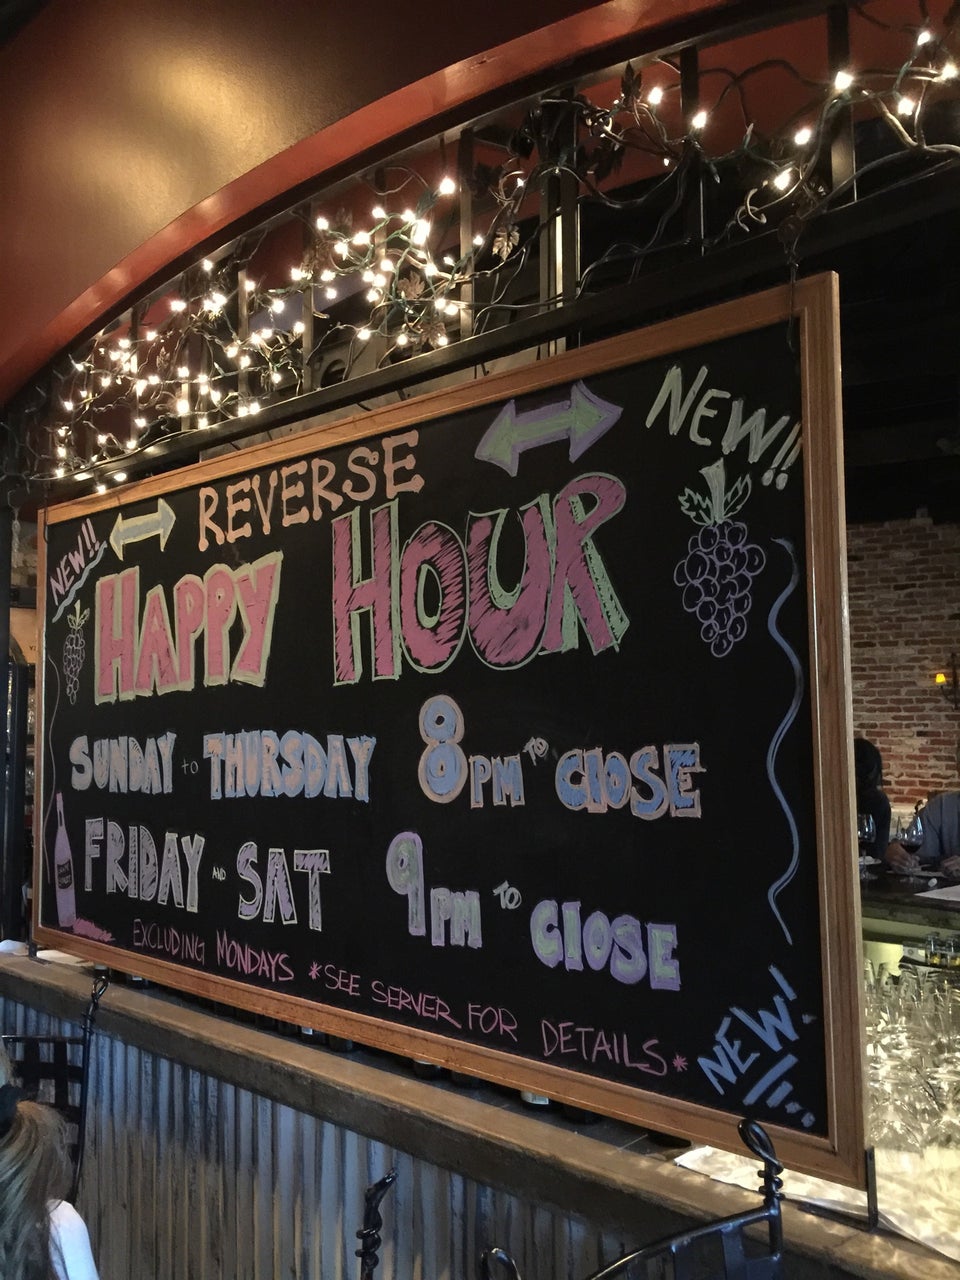 NEW!!
REVERSE
NEW!!
HAPPY HOUR
SUNDAY TO THURSDAY 8PM TO CLOSE
FRIDAY AND SAT 9PM TO CLOSE
EXCLUDING MONDAYS *SEE SERVER FOR DETAILS*
NEW!